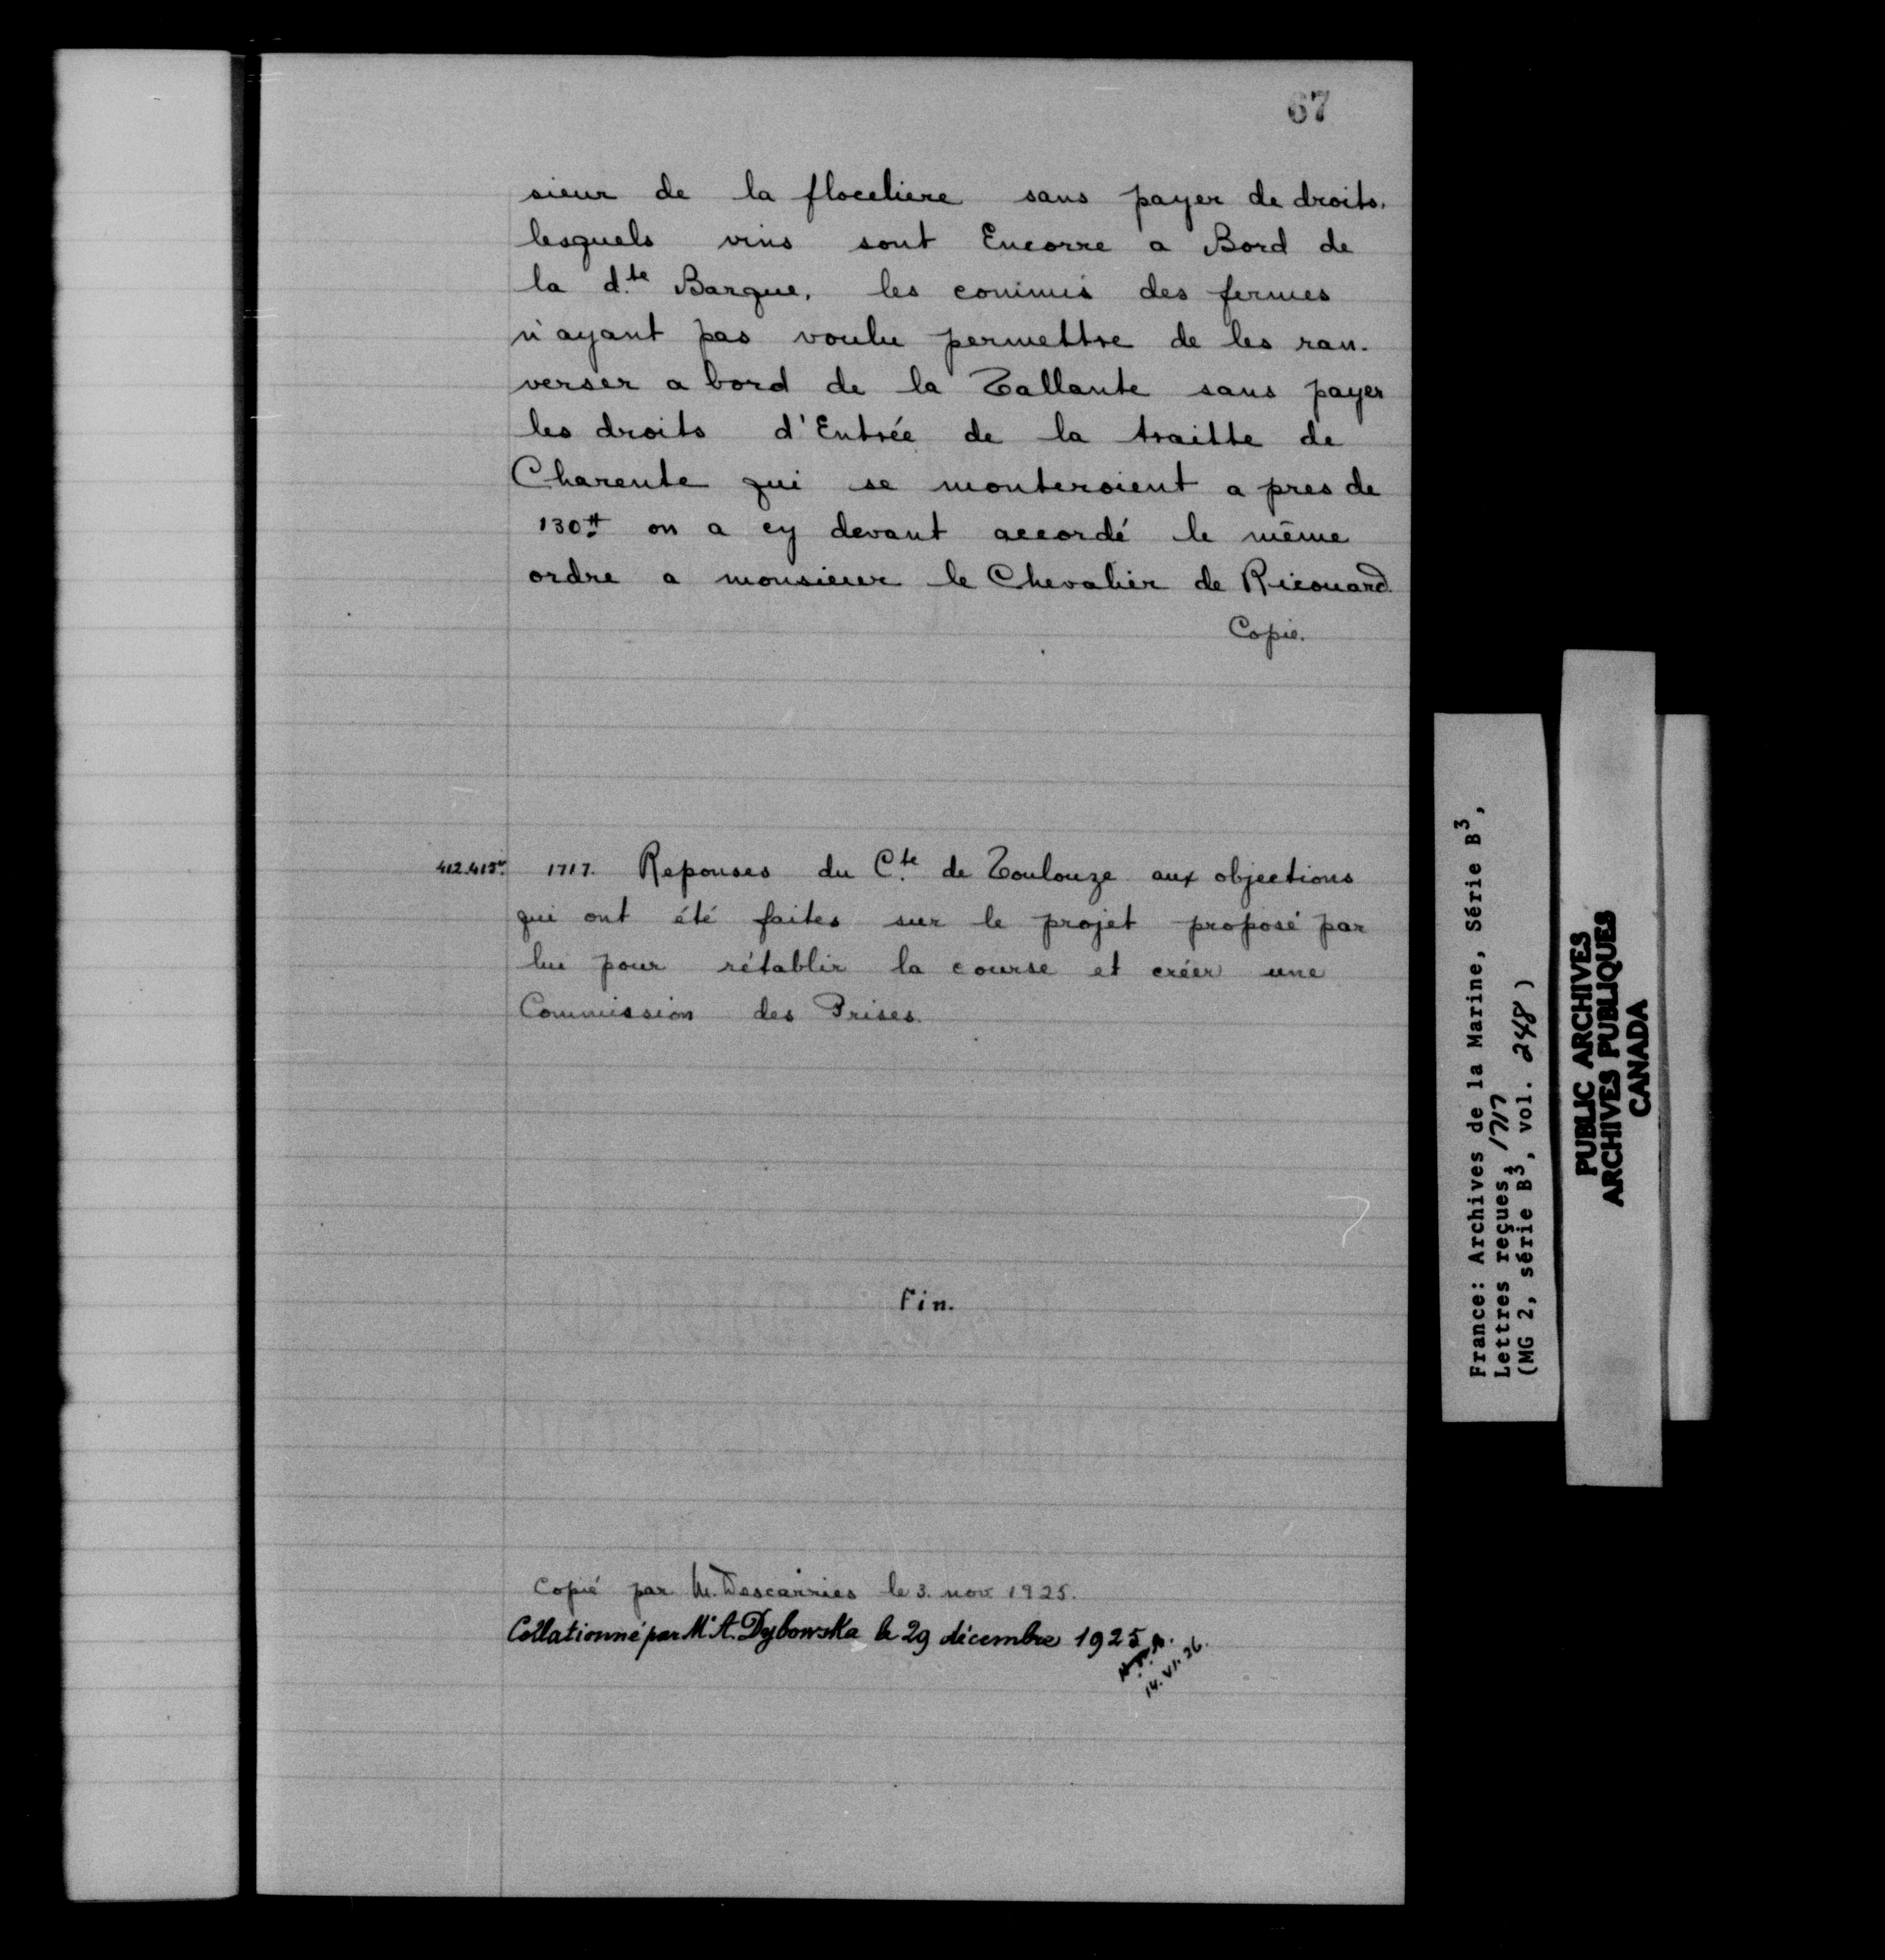 67
sieur de la floceliere sans payer de droits.
lesquels vins sont Encorre a Bord de
la d.te Barque, les commis des fermes
n'ayant pas voulu permettre de les ran-
verser a bord de la Tallante sans payer
les droits d'Entrée de la traitte de
Charente qui se monteroient a pres de
130tt on a cy devant accordé le même
ordre a monsieur le Chevalier de Ricouard.
Copie.
412.415vo 1717. Reponses du C.te de Toulouze aux objections
qui ont été faites sur le projet proposé par
lui pour rétablir la course et créer une
Commission des Prises.
Fin.
Copié par M. Descarries le 3. nov 1925.
Collationné par Me A. Dybowska le 29 décembre 1925
14.VI.26.
France: Archives de la Marine, Série B3,
Lettres reçues, 1717
(MG 2, série B3, vol. 248)
PUBLIC ARCHIVES
ARCHIVES PUBLIQUES
CANADA